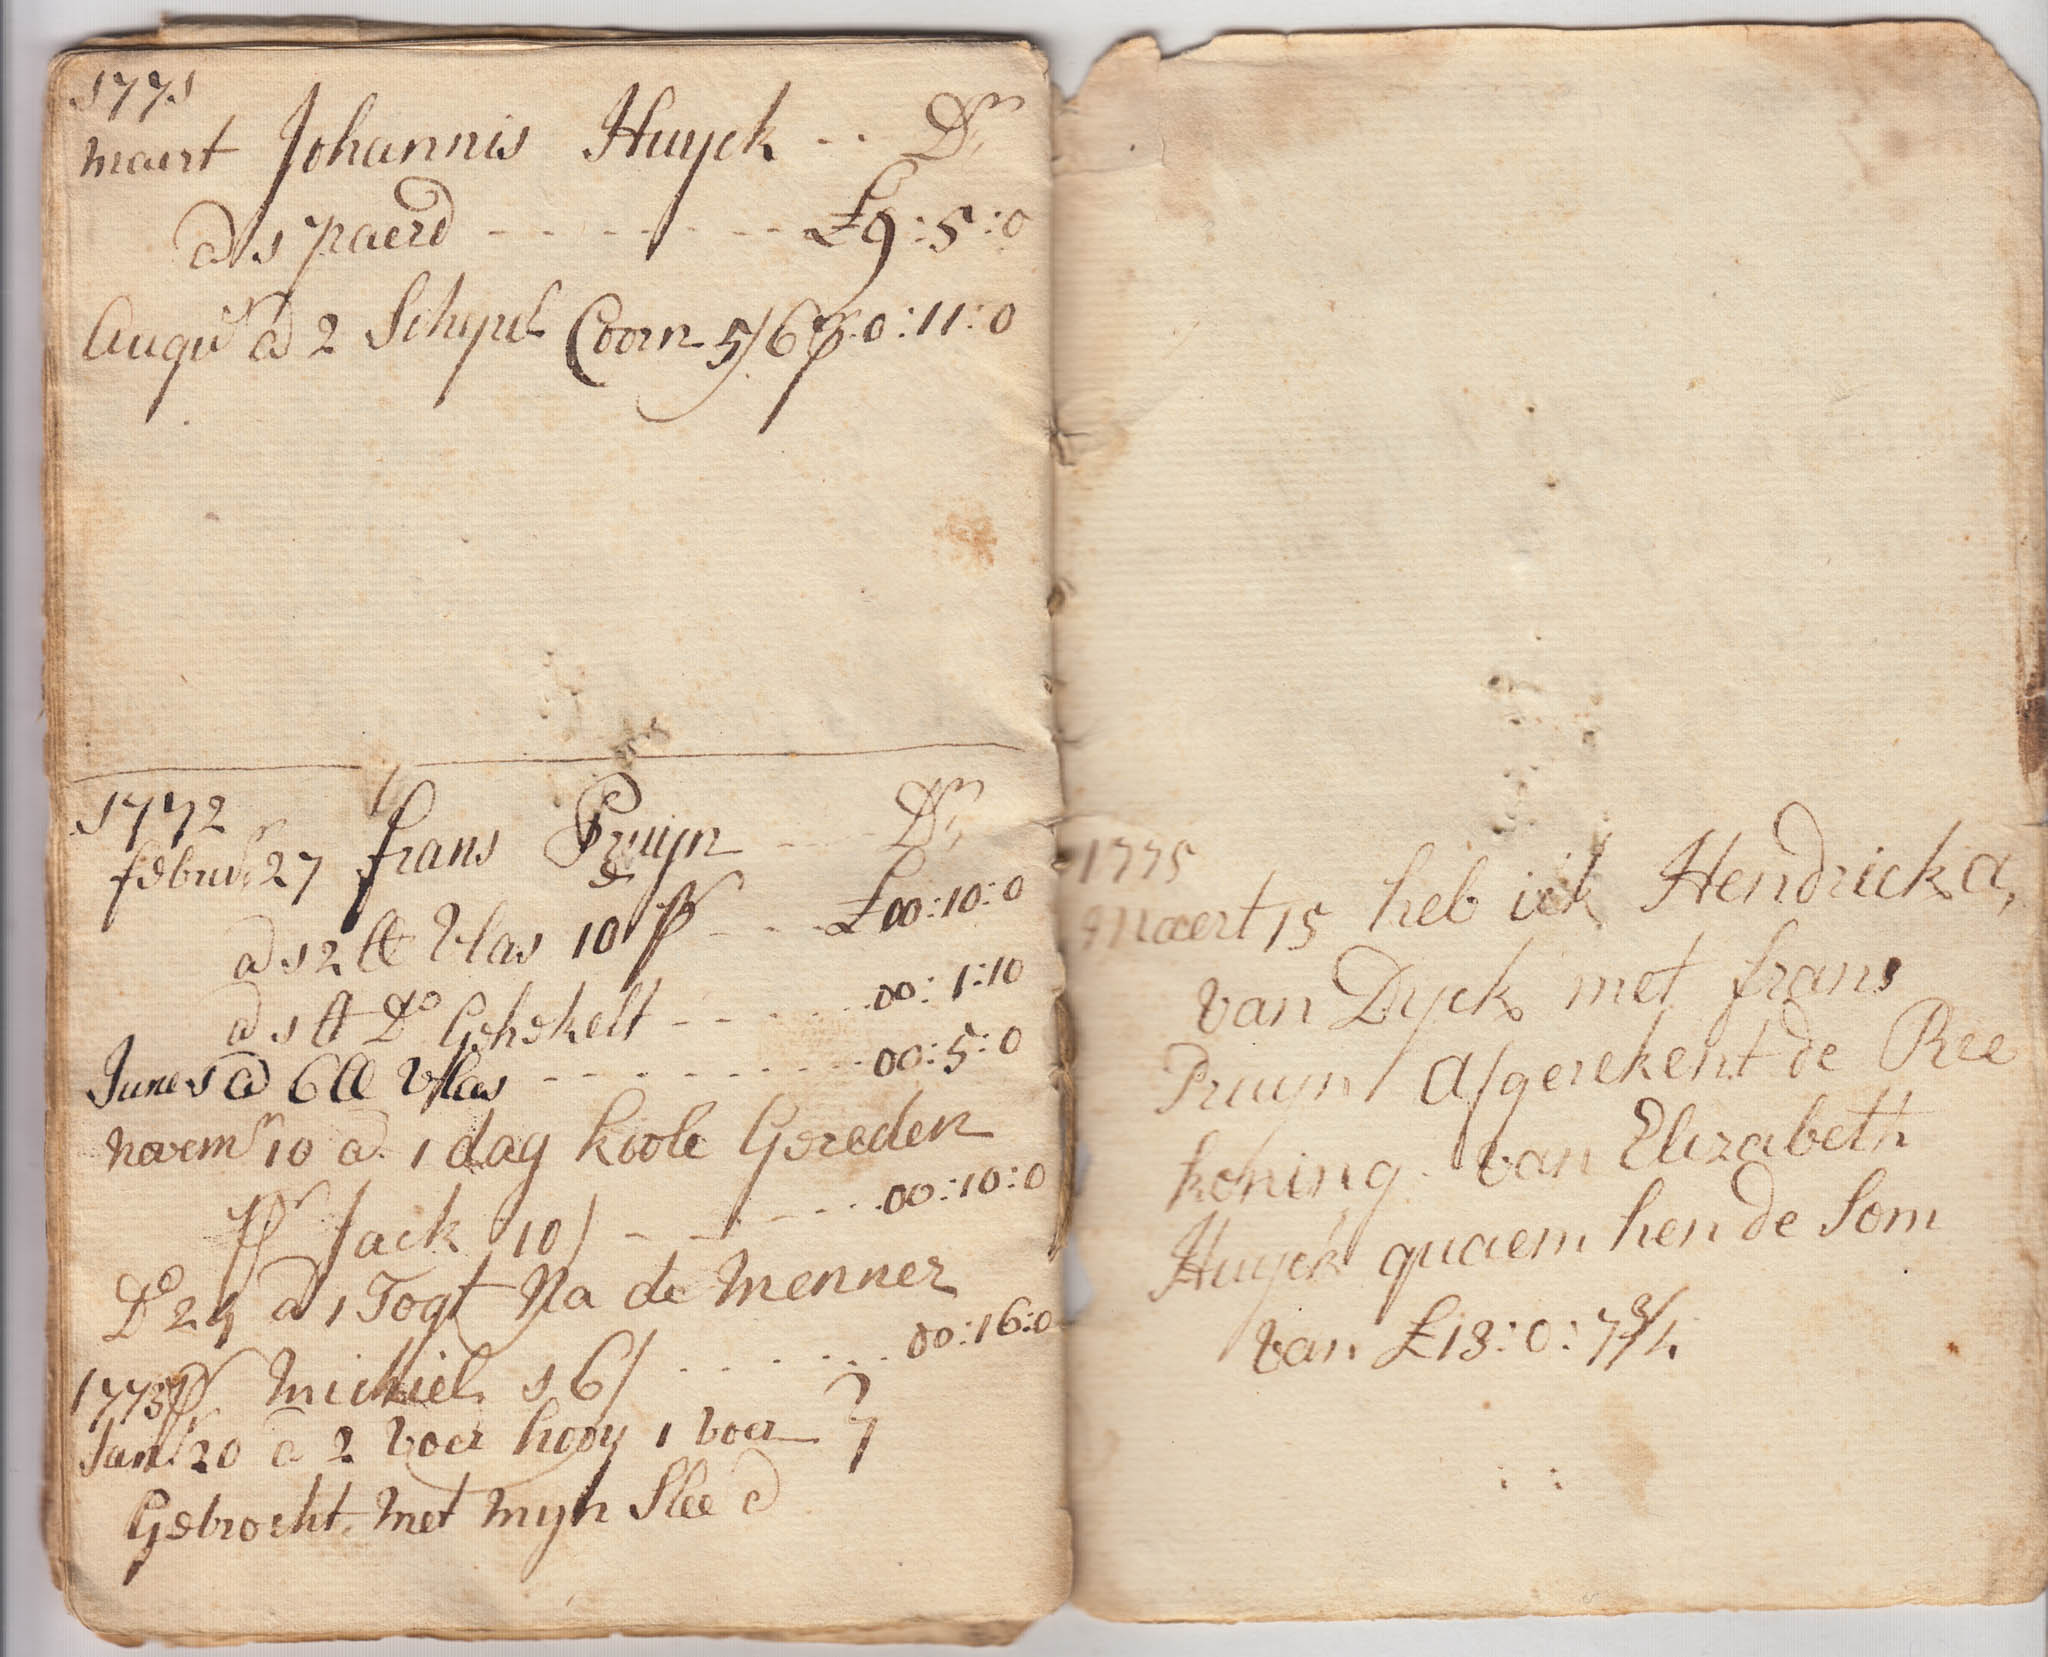 1771
maert Johannis Huyck .. Dr
a 1 paerd - - - - - - - - £9:5:0
Augus a 2 Schepel Coorn 5/6 pr 0:11:0
1772
februr 27 frans Pruyn - - - Dr
a 12 lb Vlas 10 pr - - - £00:10:0
a 1 lb Do Gehekelt - - - - - 00:1:10
June 1 a 6 lb Vlas - - - - - - - - 00:5:0
novemr 10 a 1 dag koole Gereden
pr Jack 10/ - - - - - - 00:10:0
Do 24 a 1 Togt Na de menner
1773 pr michiel 16/ - - - - - - 00:16:0
Janr 20 a 2 voer hooy 1 voer
Gebrocht met myn Slee a
1775
Maert 15 heb ick Hendrick a,
van Dyck met frans
Pruyn Afgerekent de Ree
koning van Elizabeth
Huyck quaem hen de Som
van £13:0:7 3/4